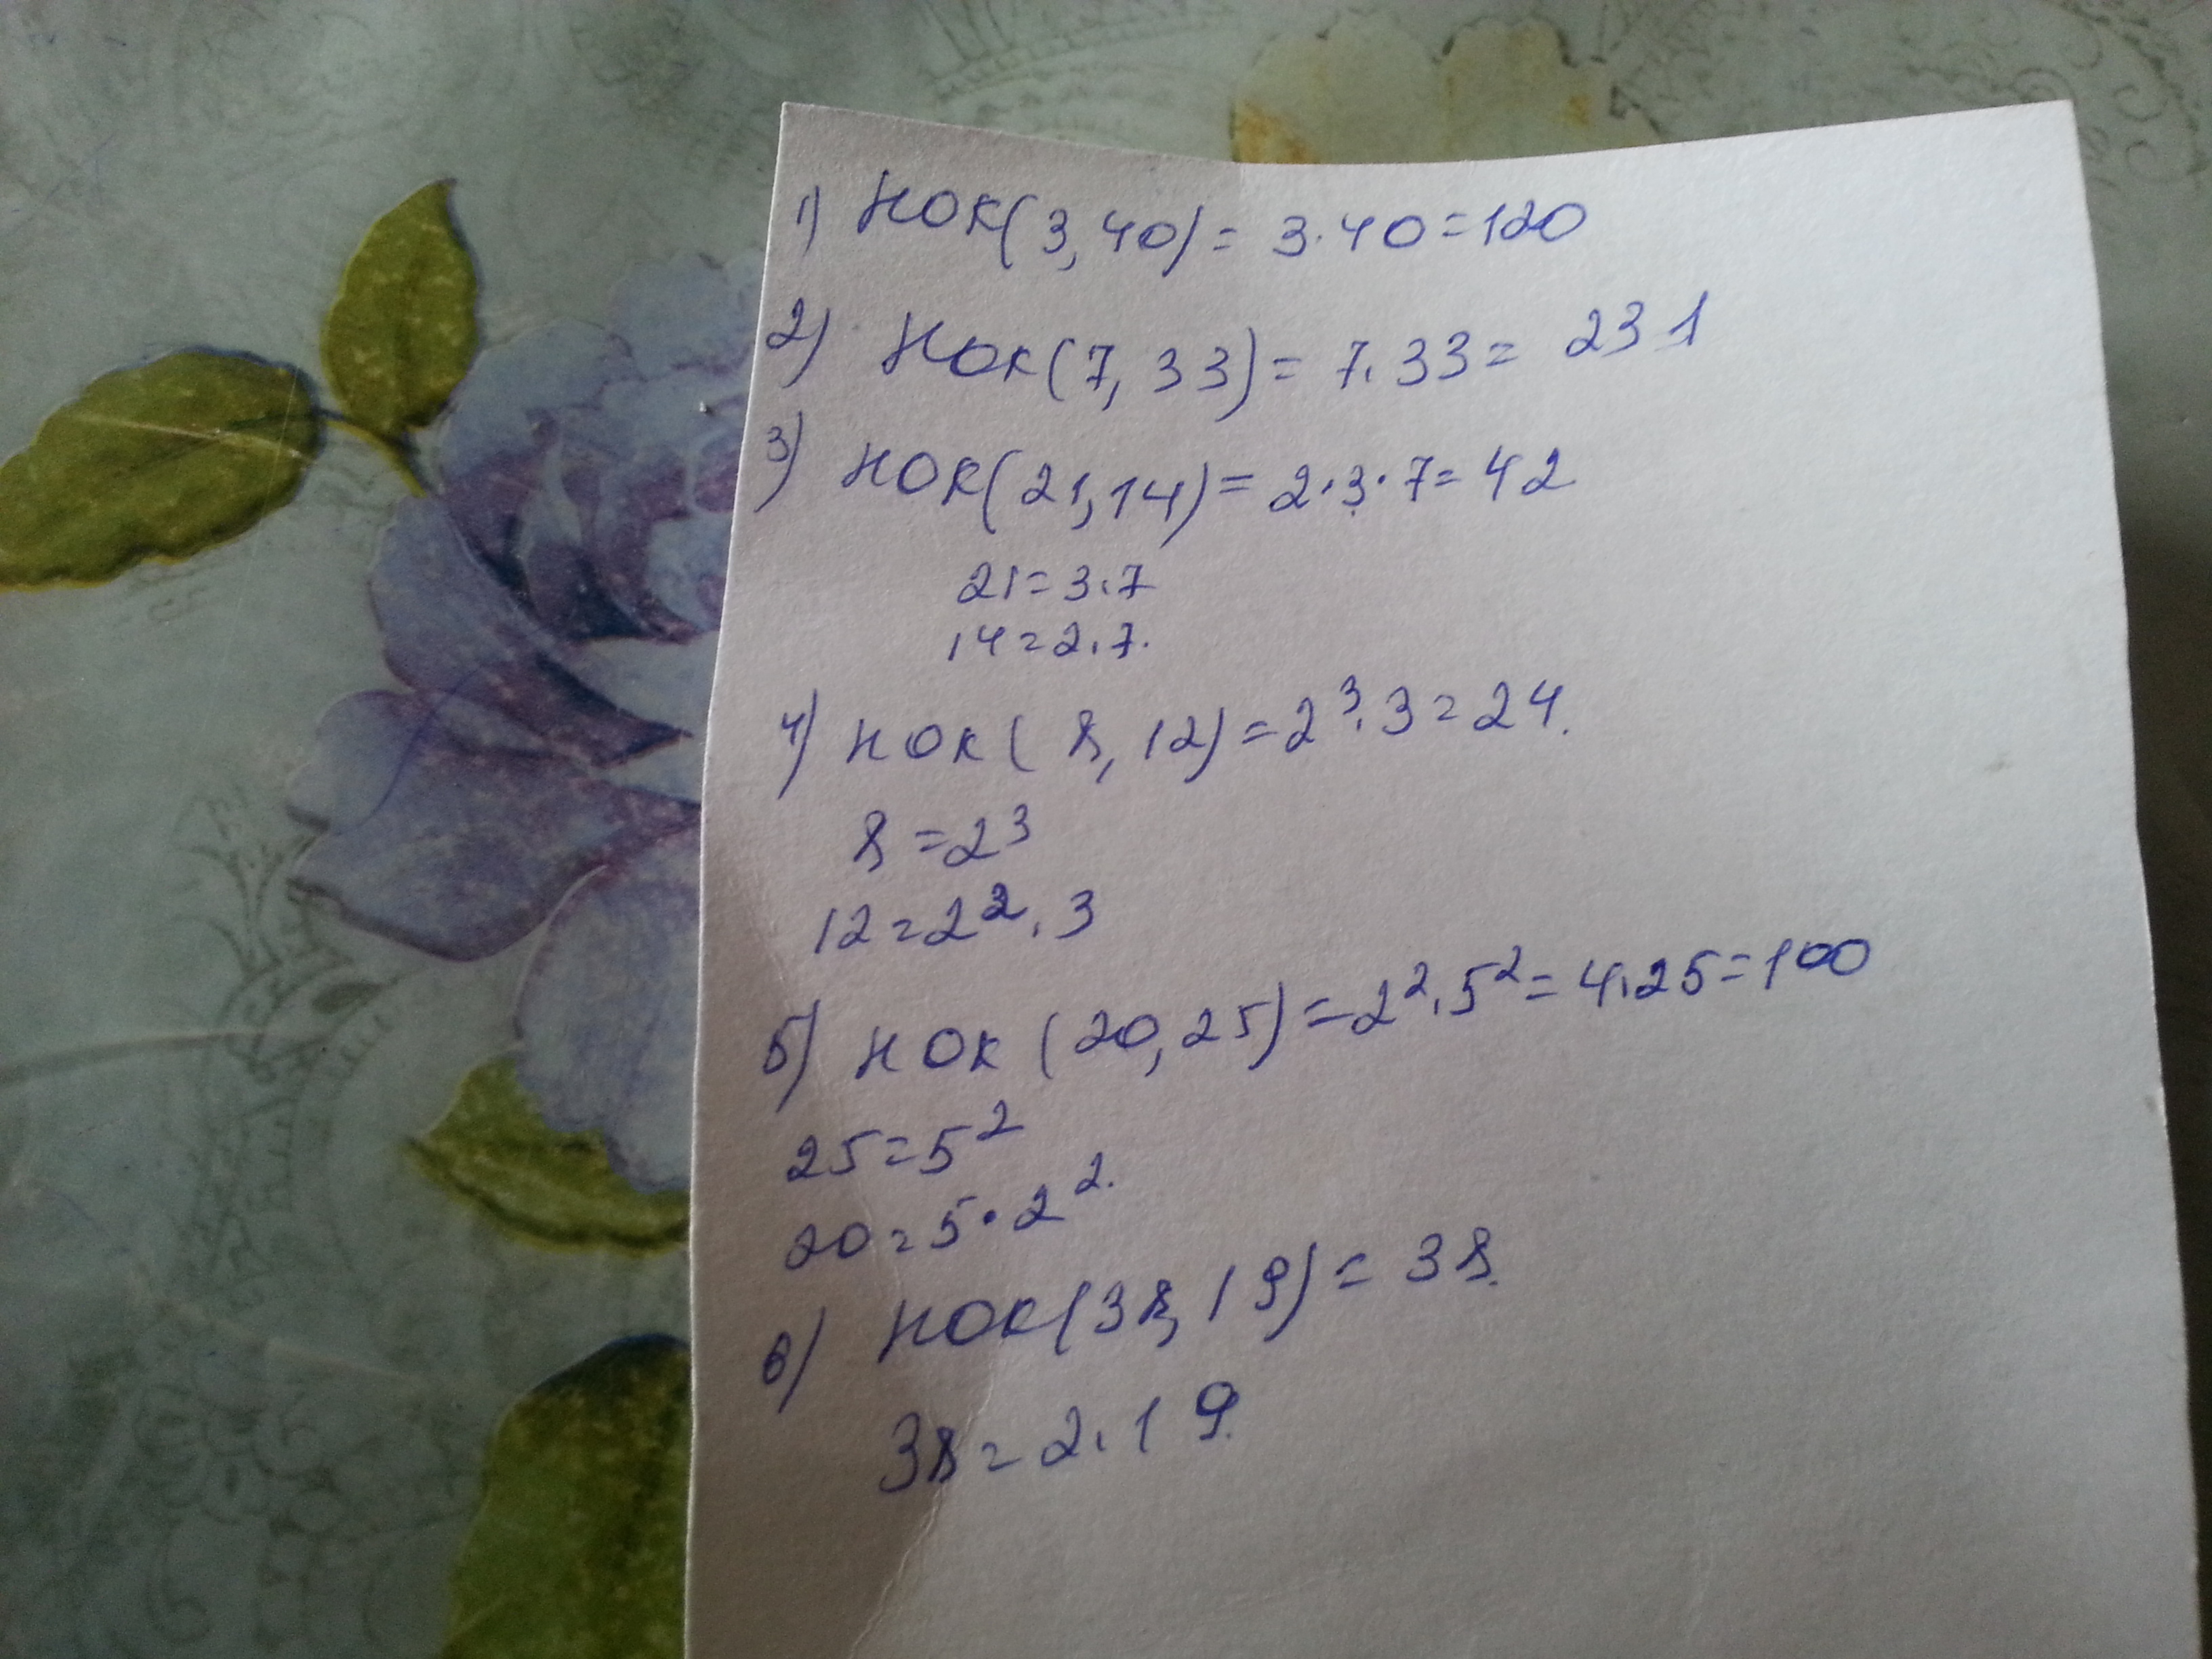 1) НОК(3,40)=3·40=120
2) НОК(7,33)=7·33=231
3) НОК(21,14)=2·3·7=42
21=3·7
14=2·7.
4) НОК(8,12)=2³·3=24.
8=2³
12=2²·3
5) НОК(20,25)=2²·5²=4·25=100
25=5²
20=5·2².
6) НОК(38,19)=38.
38=2·19.